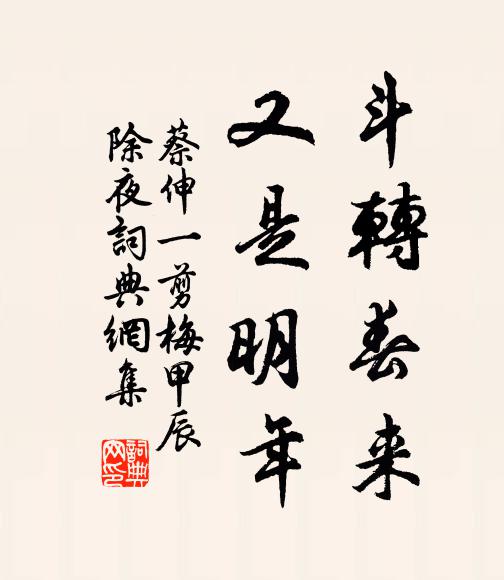 斗轉春来
又是明年
蔡伸一剪梅甲辰
除夜詞典網集
詞典
网印